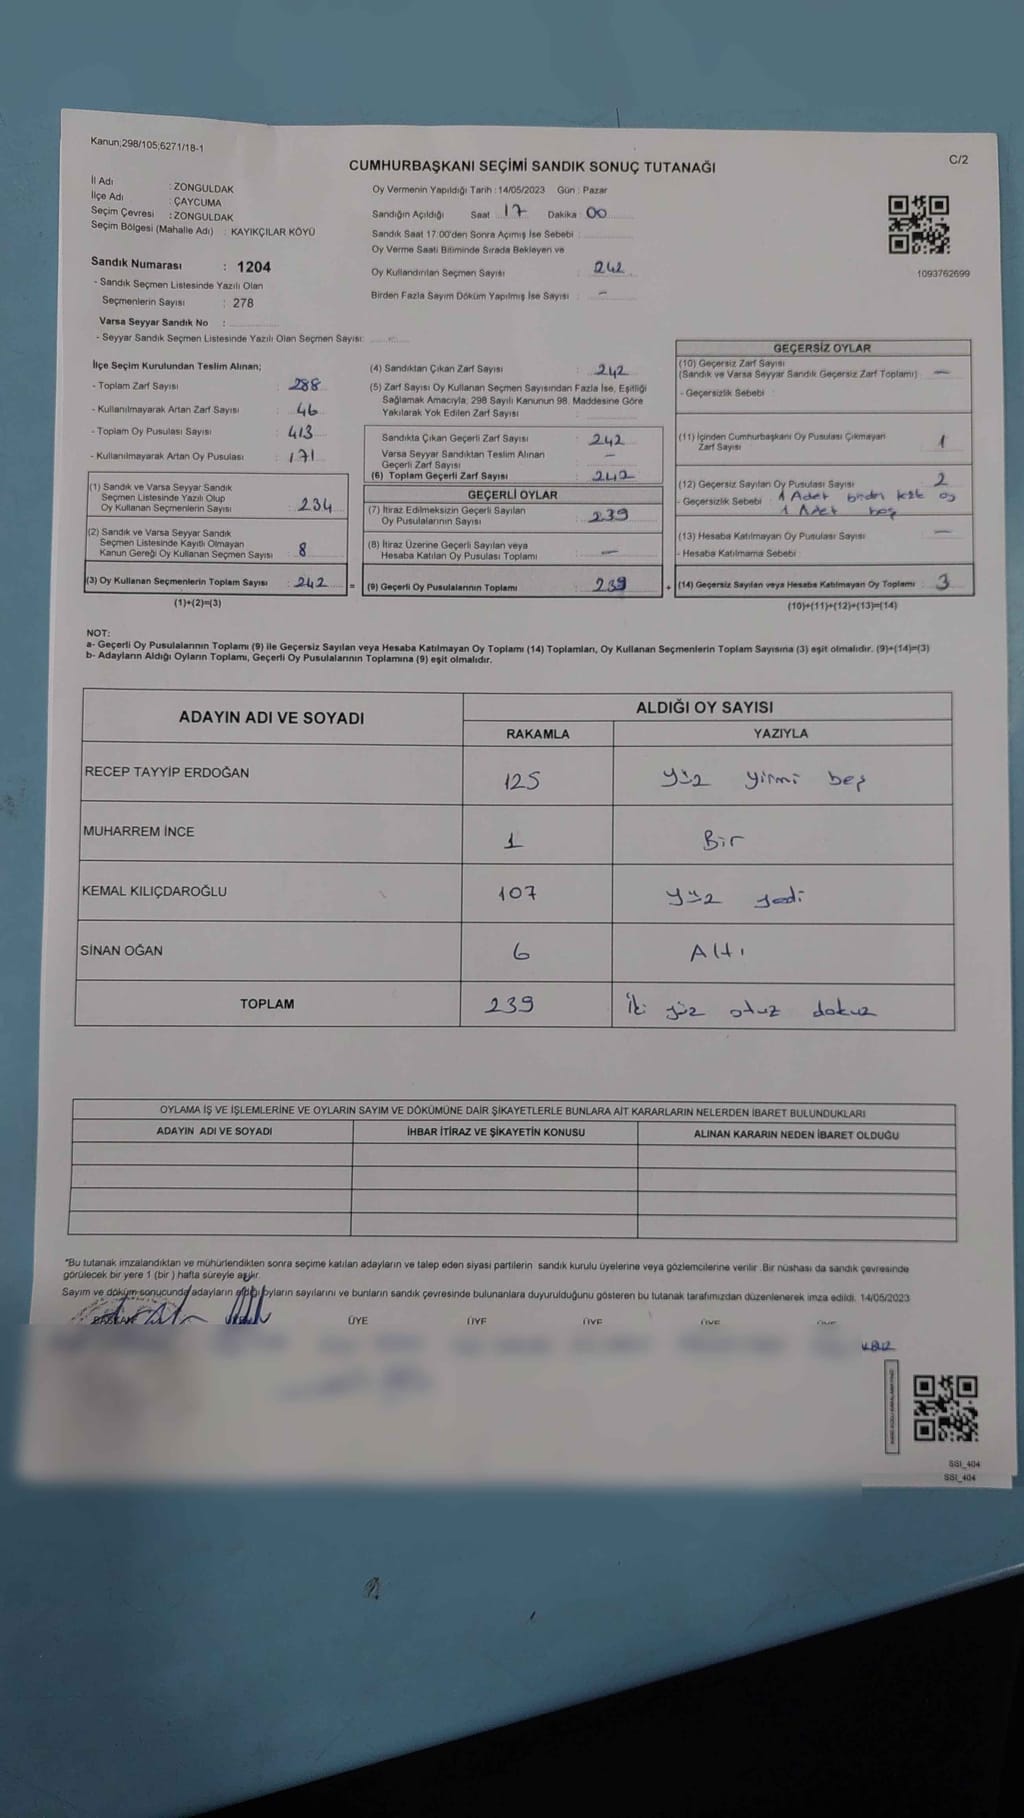 Kanun;298/105;6271/18-1
C/2
CUMHURBAŞKANI SEÇİMİ SANDIK SONUÇ TUTANAĞI
İl Adı : ZONGULDAK
İlçe Adı : ÇAYCUMA
Seçim Çevresi : ZONGULDAK
Seçim Bölgesi (Mahalle Adı) : KAYIKÇILAR KÖYÜ
Sandık Numarası : 1204
- Sandık Seçmen Listesinde Yazılı Olan
Seçmenlerin Sayısı : 278
Varsa Seyyar Sandık No :
- Seyyar Sandık Seçmen Listesinde Yazılı Olan Seçmen Sayısı:
Oy Vermenin Yapıldığı Tarih : 14/05/2023 Gün : Pazar
Sandığın Açıldığı Saat 17 Dakika 00
Sandık Saat 17:00'den Sonra Açımış İse Sebebi :
Oy Verme Saati Bitiminde Sırada Bekleyen ve
Oy Kullandırılan Seçmen Sayısı : 242
Birden Fazla Sayım Döküm Yapılmış İse Sayısı : -
1093762699
İlçe Seçim Kurulundan Teslim Alınan;
- Toplam Zarf Sayısı : 288
- Kullanılmayarak Artan Zarf Sayısı : 46
- Toplam Oy Pusulası Sayısı : 413
- Kullanılmayarak Artan Oy Pusulası : 171
(1) Sandık ve Varsa Seyyar Sandık
Seçmen Listesinde Yazılı Olup
Oy Kullanan Seçmenlerin Sayısı : 234
(2) Sandık ve Varsa Seyyar Sandık
Seçmen Listesinde Kayıtlı Olmayan
Kanun Gereği Oy Kullanan Seçmen Sayısı : 8
(3) Oy Kullanan Seçmenlerin Toplam Sayısı : 242
(1)+(2)=(3)
(4) Sandıktan Çıkan Zarf Sayısı : 242
(5) Zarf Sayısı Oy Kullanan Seçmen Sayısından Fazla İse, Eşitliği
Sağlamak Amacıyla, 298 Sayılı Kanunun 98. Maddesine Göre
Yakılarak Yok Edilen Zarf Sayısı :
Sandıkta Çıkan Geçerli Zarf Sayısı : 242
Varsa Seyyar Sandıktan Teslim Alınan
Geçerli Zarf Sayısı : -
(6) Toplam Geçerli Zarf Sayısı : 242
GEÇERLİ OYLAR
(7) İtiraz Edilmeksizin Geçerli Sayılan
Oy Pusulalarının Sayısı : 239
(8) İtiraz Üzerine Geçerli Sayılan veya
Hesaba Katılan Oy Pusulası Toplamı : -
= (9) Geçerli Oy Pusulalarının Toplamı : 239 +
GEÇERSİZ OYLAR
(10) Geçersiz Zarf Sayısı
(Sandık ve Varsa Seyyar Sandık Geçersiz Zarf Toplamı) : -
- Geçersizlik Sebebi :
(11) İçinden Cumhurbaşkanı Oy Pusulası Çıkmayan
Zarf Sayısı : 1
(12) Geçersiz Sayılan Oy Pusulası Sayısı : 2
- Geçersizlik Sebebi : 1 Adet birden fazla oy
1 Adet boş
(13) Hesaba Katılmayan Oy Pusulası Sayısı : -
- Hesaba Katılmama Sebebi :
(14) Geçersiz Sayılan veya Hesaba Katılmayan Oy Toplamı : 3
(10)+(11)+(12)+(13)=(14)
NOT:
a- Geçerli Oy Pusulalarının Toplamı (9) ile Geçersiz Sayılan veya Hesaba Katılmayan Oy Toplamı (14) Toplamları, Oy Kullanan Seçmenlerin Toplam Sayısına (3) eşit olmalıdır. (9)+(14)=(3)
b- Adayların Aldığı Oyların Toplamı, Geçerli Oy Pusulalarının Toplamına (9) eşit olmalıdır.
ADAYIN ADI VE SOYADI ALDIĞI OY SAYISI
RAKAMLA YAZIYLA
RECEP TAYYİP ERDOĞAN 125 Yüz yirmi beş
MUHARREM İNCE 1 Bir
KEMAL KILIÇDAROĞLU 107 Yüz yedi
SİNAN OĞAN 6 Altı
TOPLAM 239 İki yüz otuz dokuz
OYLAMA İŞ VE İŞLEMLERİNE VE OYLARIN SAYIM VE DÖKÜMÜNE DAİR ŞİKAYETLERLE BUNLARA AİT KARARLARIN NELERDEN İBARET BULUNDUKLARI
ADAYIN ADI VE SOYADI İHBAR İTİRAZ VE ŞİKAYETİN KONUSU ALINAN KARARIN NEDEN İBARET OLDUĞU
"Bu tutanak imzalandıktan ve mühürlendikten sonra seçime katılan adayların ve talep eden siyasi partilerin sandık kurulu üyelerine veya gözlemcilerine verilir. Bir nüshası da sandık çevresinde
görülecek bir yere 1 (bir ) hafta süreyle asılır.
Sayım ve döküm sonucunda adayların aldığı oyların sayılarını ve bunların sandık çevresinde bulunanlara duyurulduğunu gösteren bu tutanak tarafımızdan düzenlenerek imza edildi. 14/05/2023
BAŞKAN ÜYE ÜYE ÜYE ÜYE ÜYE
SSI_404
SSI_404